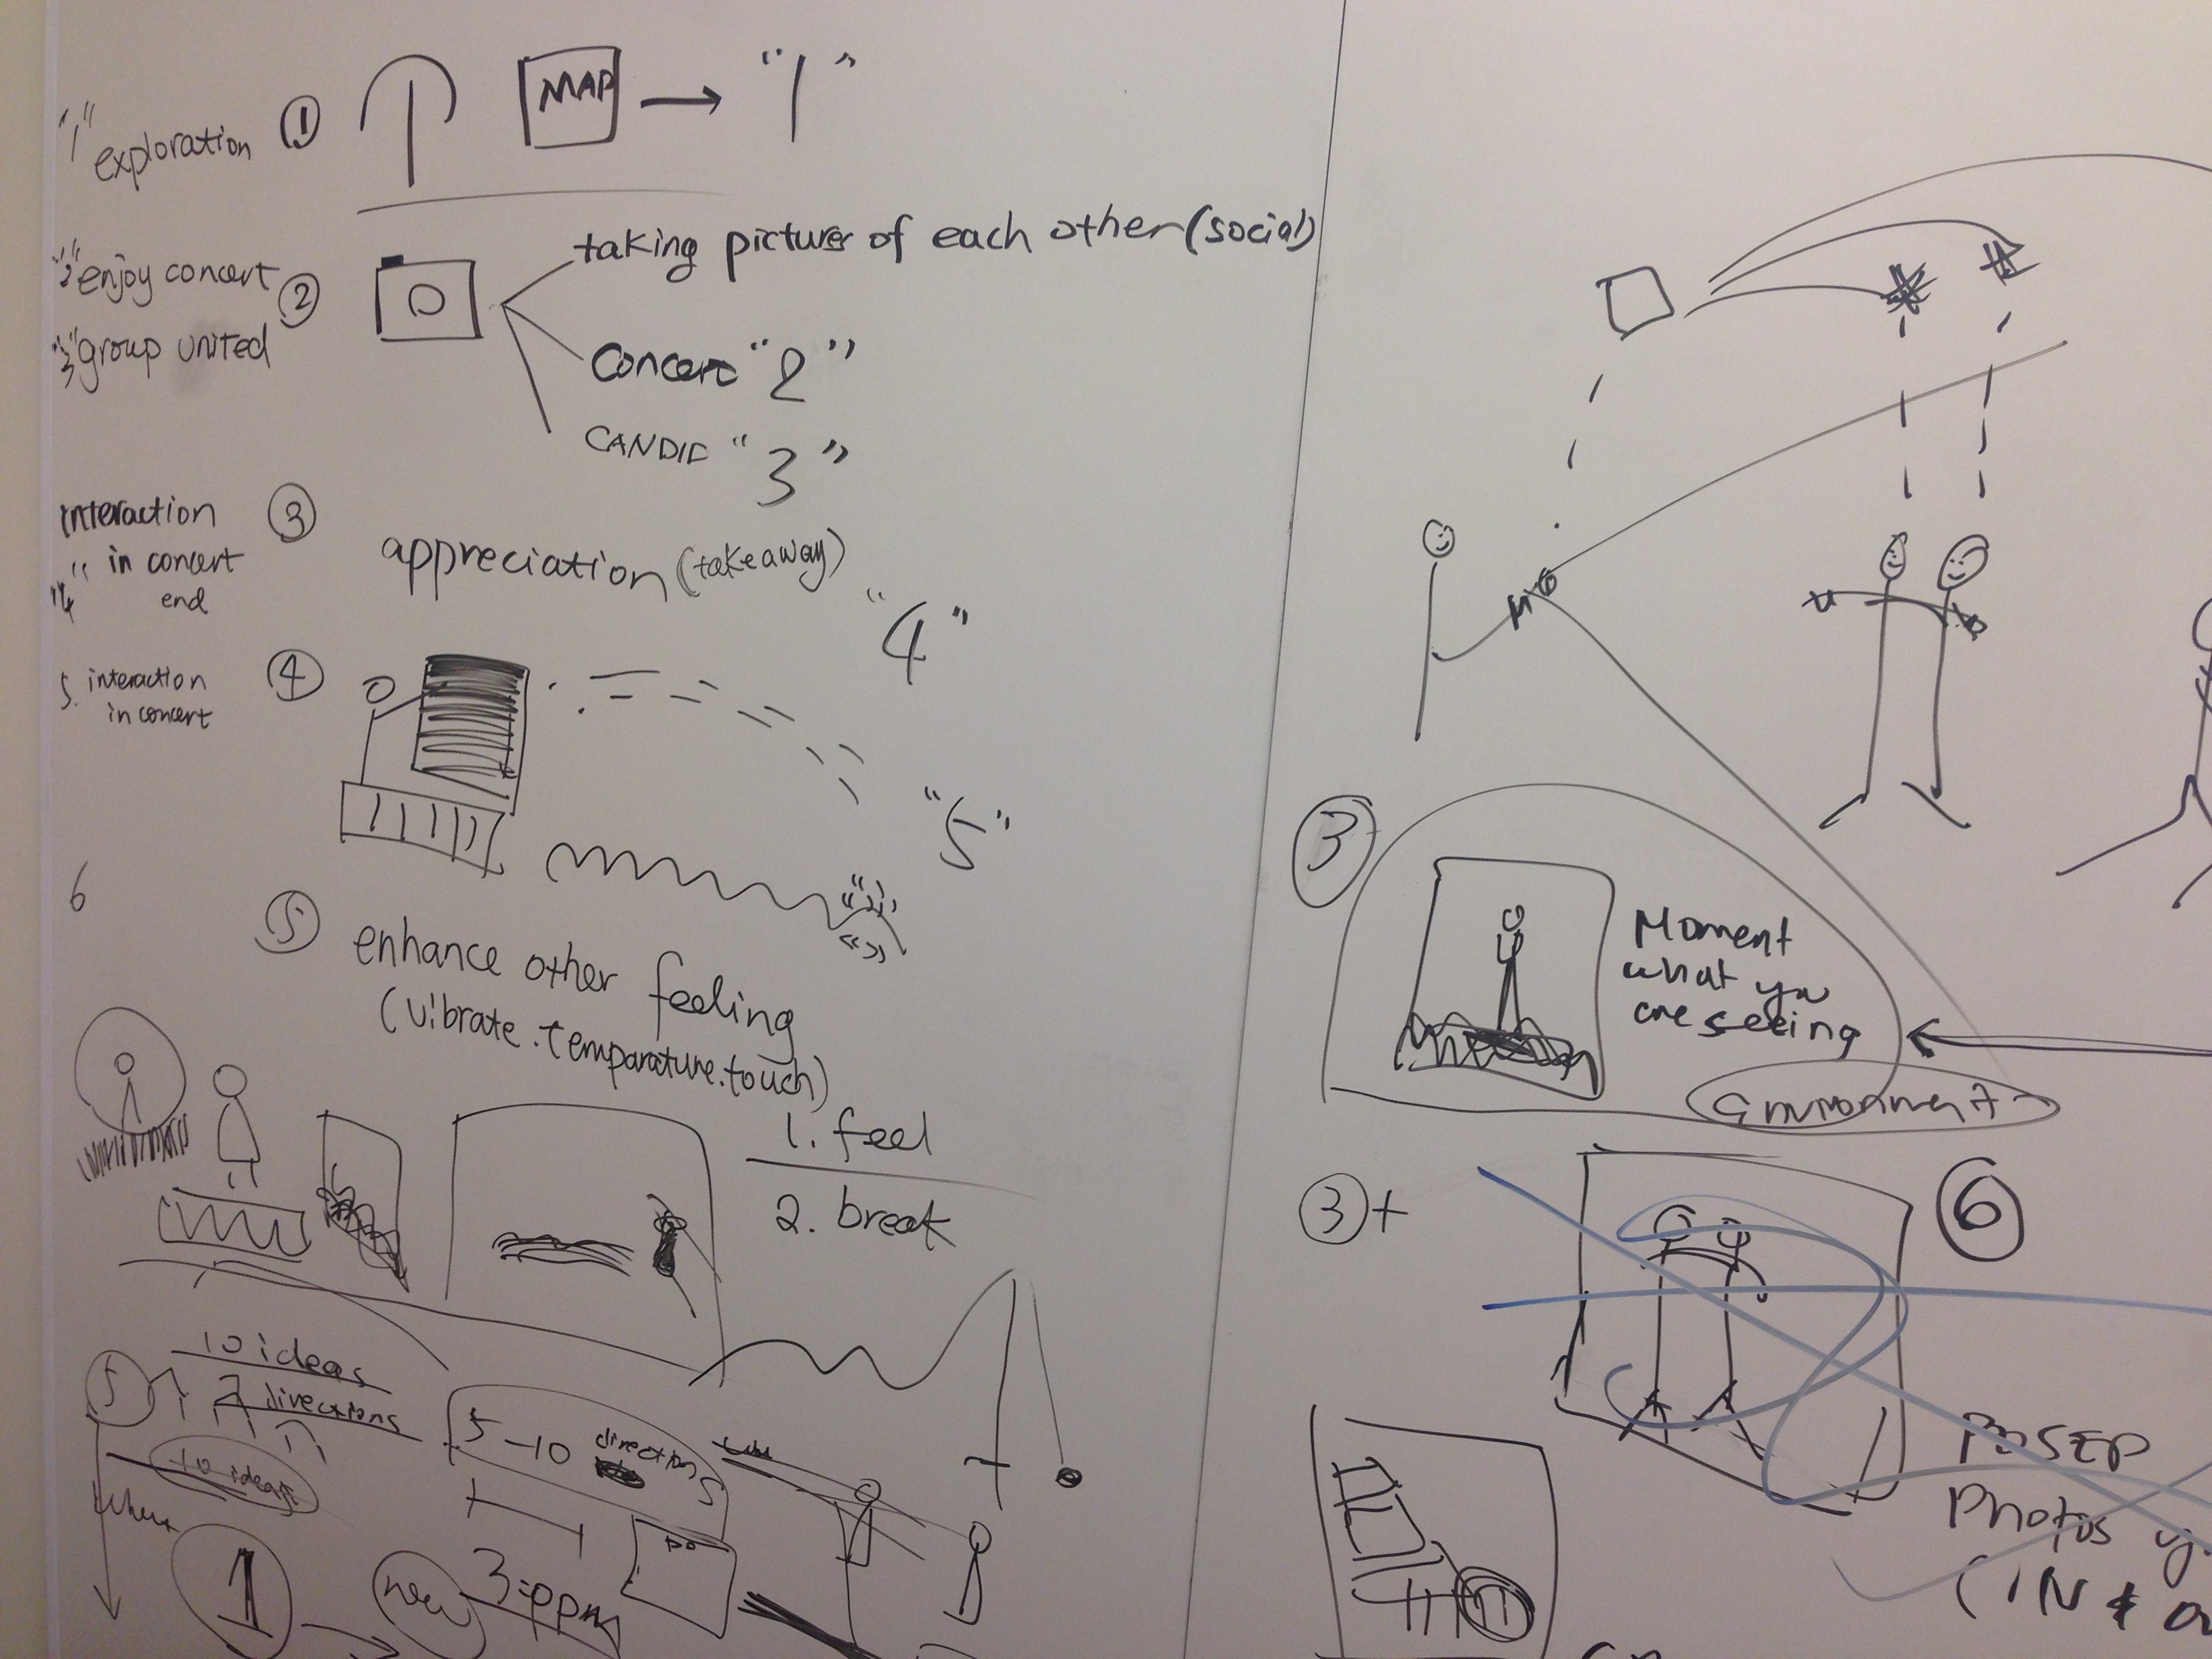 "1"
exploration
①
MAP → "1"
"2" enjoy concert
"3" group united
②
taking pictures of each other (social)
Concert "2"
CANDID "3"
interaction
"4" in concert
end
③
appreciation (takeaway)
"4"
5. interaction
in concert
④
"5"
6
⑤
enhance other feeling
(vibrate.temparature.touch)
1. feel
2. break
10 ideas
5
2 directions
10 ideas
5-10 directions
1
new
3:00pm
③
Moment
what you
are seeing
environment
③+
⑥
POSED
Photos
(IN &